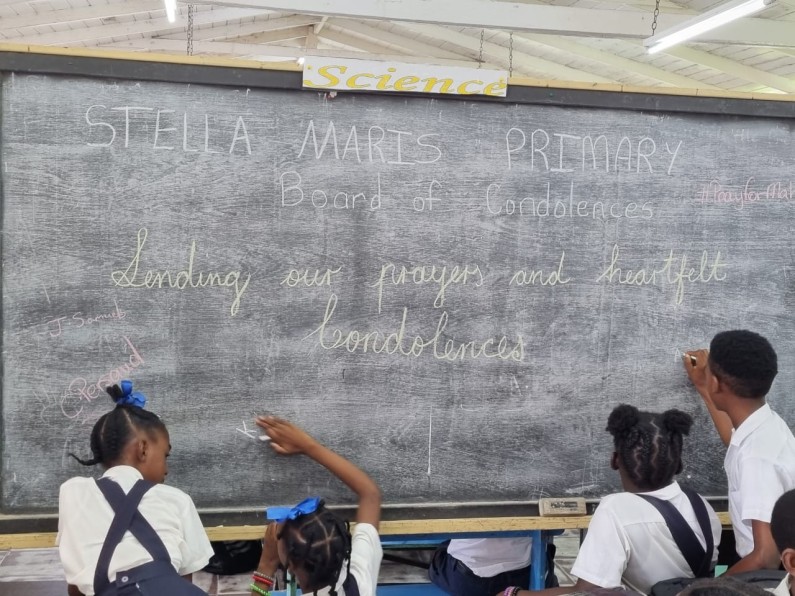 Science
STELLA MARIS PRIMARY
Board of Condolences
Sending our prayers and heartfelt
Condolences
J. Samuels
Persaud
K